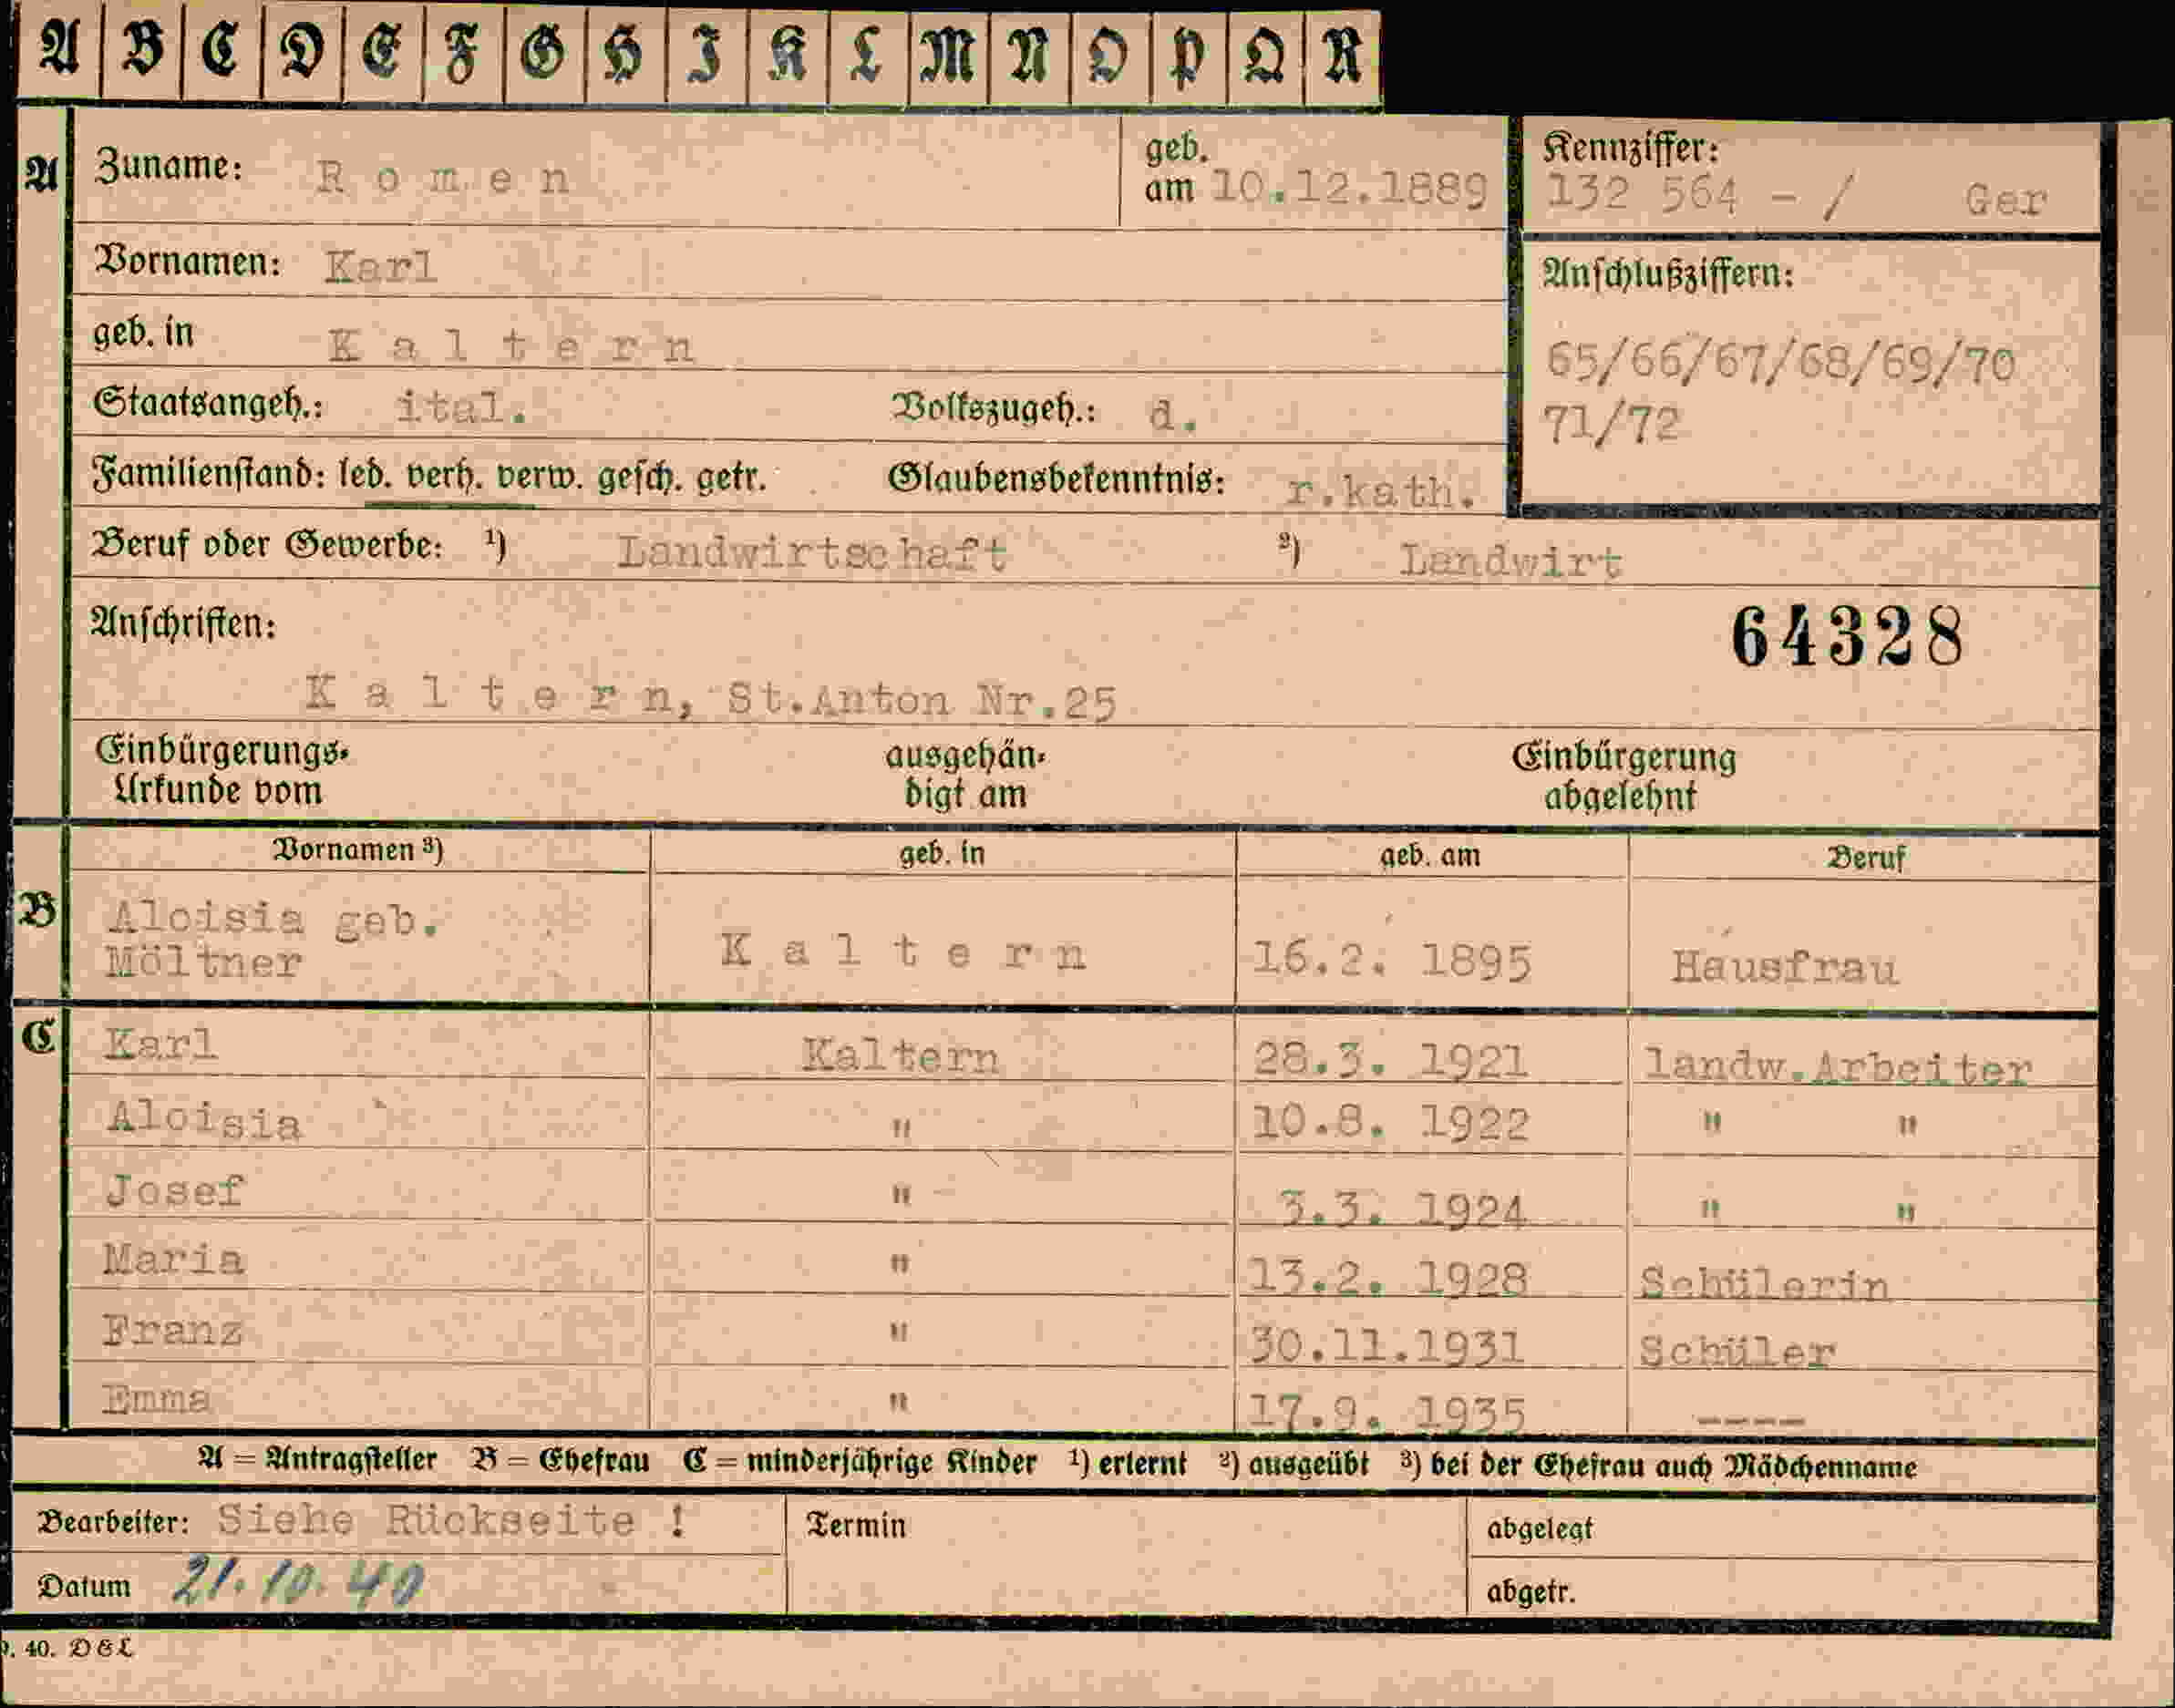 A B C D E F G H I K L M N O P Q R
A
Zuname: Romen
geb. am 10.12.1889
Kennziffer:
132 564 - / Ger
Vornamen: Karl
Anschlußziffern:
65/66/67/68/69/70
71/72
geb. in Kaltern
Staatsangeh.: ital. Volkszugeh.: d.
Familienstand: led. verh. verw. gesch. getr. Glaubensbekenntnis: r.kath.
Beruf oder Gewerbe: ¹) Landwirtschaft ²) Landwirt
Anschriften:
64328
Kaltern, St.Anton Nr.25
Einbürgerungs- ausgehän- Einbürgerung
Urkunde vom digt am abgelehnt
Vornamen ³) geb. in geb. am Beruf
B
Aloisia geb.
Möltner Kaltern 16.2. 1895 Hausfrau
C
Karl Kaltern 28.3. 1921 landw.Arbeiter
Aloisia " 10.8. 1922 " "
Josef " 3.3. 1924 " "
Maria " 13.2. 1928 Schülerin
Franz " 30.11.1931 Schüler
Emma " 17.9. 1935 ----
A = Antragsteller B = Ehefrau C = minderjährige Kinder ¹) erlernt ²) ausgeübt ³) bei der Ehefrau auch Mädchenname
Bearbeiter: Siehe Rückseite ! Termin abgelegt
Datum 21.10.40 abgetr.
9. 40. D&L